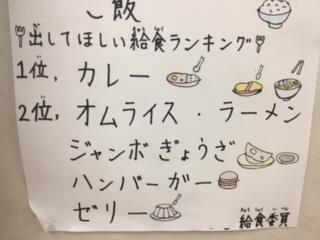 ご飯
出してほしい給食ランキング
1位,カレー
2位,オムライス・ラーメン
ジャンボぎょうざ
ハンバーガー
ゼリー
給食委員